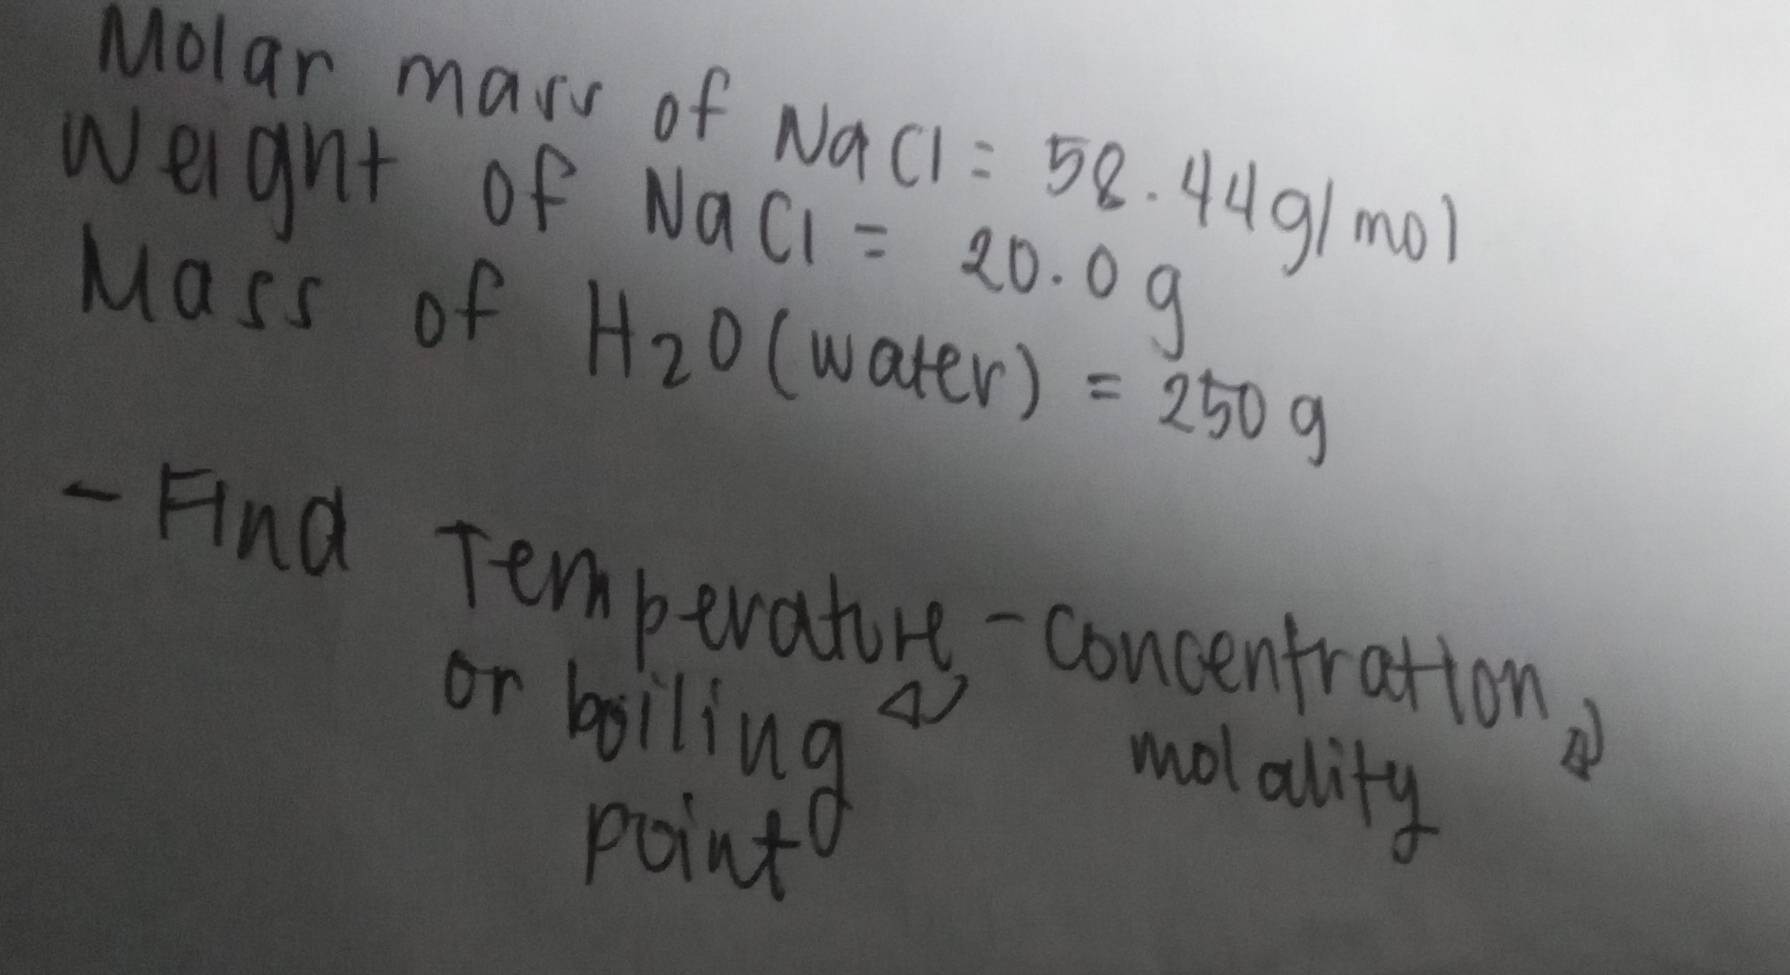 Molar mass of NaCl = 58.44g/mol
Weight of NaCl = 20.0 g
Mass of H2O (water) = 250 g
- Find Temperature - Concentration
or boiling molality
point